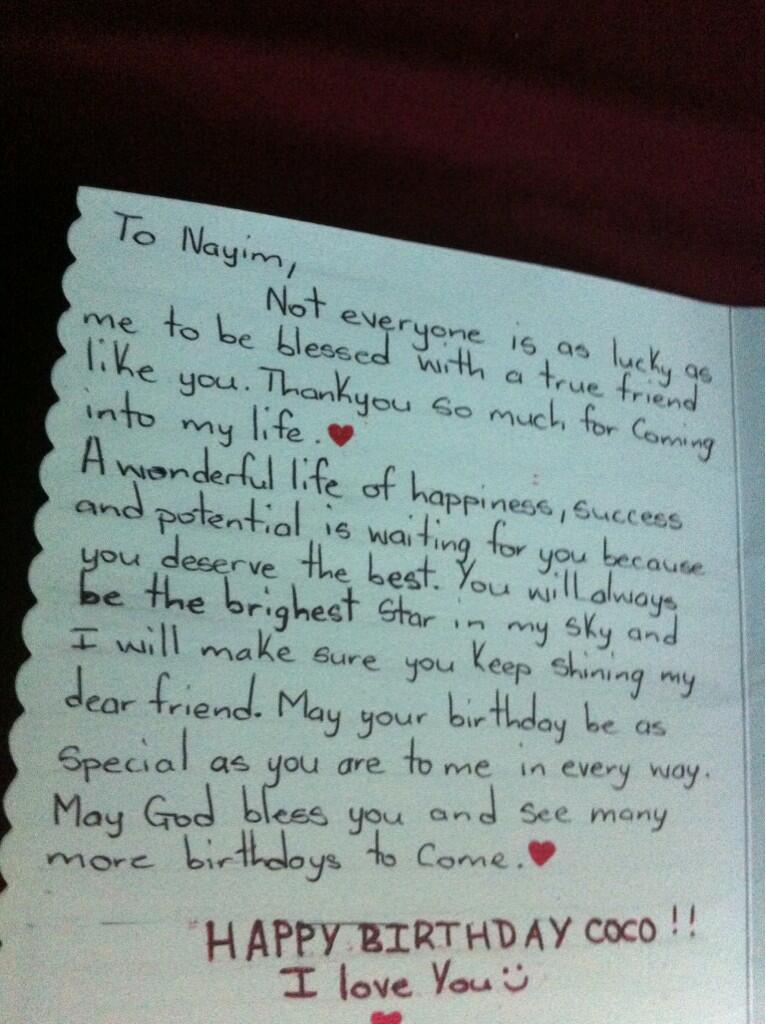 To Nayim,
Not everyone is as lucky as
me to be blessed with a true friend
like you. Thankyou so much for Coming
into my life. ♥
A wonderful life of happiness, success
and potential is waiting for you because
you deserve the best. You will always
be the brighest star in my sky and
I will make sure you keep shining my
dear friend. May your birthday be as
special as you are to me in every way.
May God bless you and see many
more birthdays to Come. ♥
HAPPY BIRTHDAY COCO !!
I love You :)